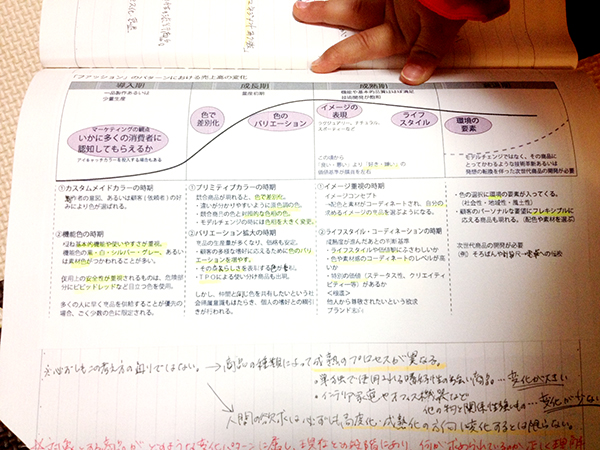 「ファッション」のパターンにおける売上高の変化
導入期
成長期
成熟期
一品製作あるいは
少量生産
量産初期
機能や基本的品質はほぼ満足
技術開発が飽和
マーケティングの観点
いかに多くの消費者に
認知してもらえるか
アイキャッチカラーを投入する場合もある
色で
差別化
色の
バリエーション
イメージの
表現
ラグジュアリー、ナチュラル、
スポーティーなど
ライフ
スタイル
この頃から
「良い・悪い」より「好き・嫌い」の
価値基準が顕在を占
環境の
要素
モデルチェンジではなく、その商品に
とってかわるような技術革新あるいは
発想の転換を伴った次世代商品の開発が必要
①カスタムメイドカラーの時期
製作者の意図、あるいは顧客（依頼者）の好
みにより色が選ばれる。
②機能色の時期
・ほぼ基本的機能や使いやすさが重視。
機能色の黒・白・シルバー・グレー、あるい
は素材色がつかわれることが多い。
使用上の安全性が重視されるものは、危険部
分にビビッドレッドなど目立つ色を使用。
多くの人に早く単品を供給することが優先の
場合、ごく少数の色に限定される。
①プリミティブカラーの時期
競合商品が現れると、色で差別化。
・違いが分かりやすいように原色調の色。
・競合商品の色と対照的な色相の色。
・モデルチェンジの時には色相を大きく変更。
②バリエーション拡大の時期
単品の生産量が多くなり、価格も安定。
・顧客の多様な好みに応えるために色のバリ
エーションを増やす。
・その商品らしさを表す色が重視。
・TPOによる使い分け商品も出現。
しかし、仲間と同じ色を共有したいという社
会帰属意識もはたらき、個人の嗜好との綱引
きが行われる。
①イメージ重視の時期
イメージコンセプト
→配色と素材がコーディネートされ、自分の
求めるイメージの単品を選ぶようになる。
②ライフスタイル・コーディネーションの時期
成熟度が進んだあとの判断基準
・ライフスタイルや価値観にふさわしいか
・色や素材感のコーディネートのレベルが高
いか
・特別の価値（ステータス性、クリエイティ
ビティー等）があるか
＜極度＞
他人から尊敬されたいという欲求
ブランド志向
・色の選択に環境の要素が入ってくる。
（社会性・地域性・風土性）
顧客のパーソナルな要望にフレキシブルに
応える商品も現れる。（配色や素材を選ぶ）
次世代商品の開発が必要
（例）そろばんや計算尺→電卓への移行
必ずしもこの考え方の通りではない。→商品の種類によって成熟のプロセスが異なる。
・単独で使用される嗜好性の少ない商品…変化が大きい
・インテリア家庭やオフィス機器など
他の物と関係性強いもの…変化が少ない
人間の欲求は必ずしも高度化・成熟化の方向に変化するとは限らない。